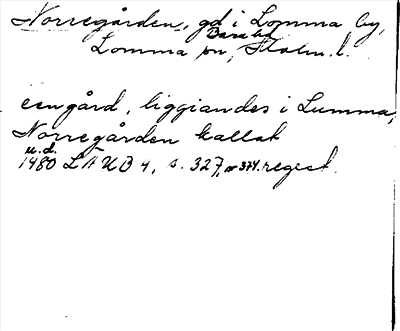 Norregården, gd i Lomma by,
Bara hd
Lomma sn, Malm. l.
een gård, liggiandes i Lumma,
Norregården kallat
u.d.
1480 LÄUB 4, s. 327, nr 374. regest.